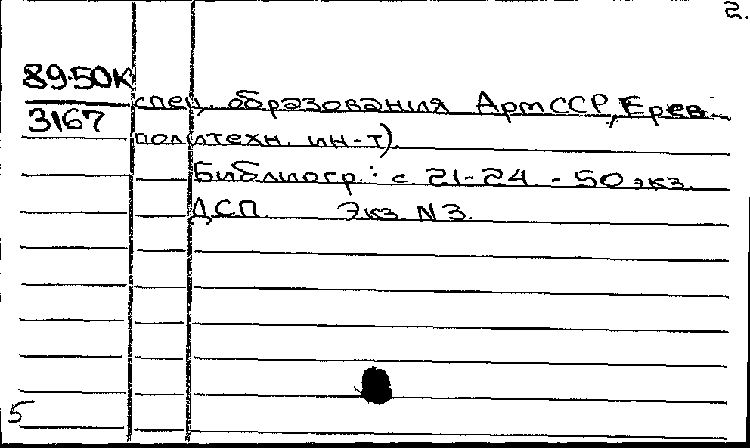 2.
89-50К
3167
спец. образования АрмССР, Ерев.
политехн. ин-т).
Библиогр.: с 21-24 - 50 экз.
ДСП Экз N3.
5